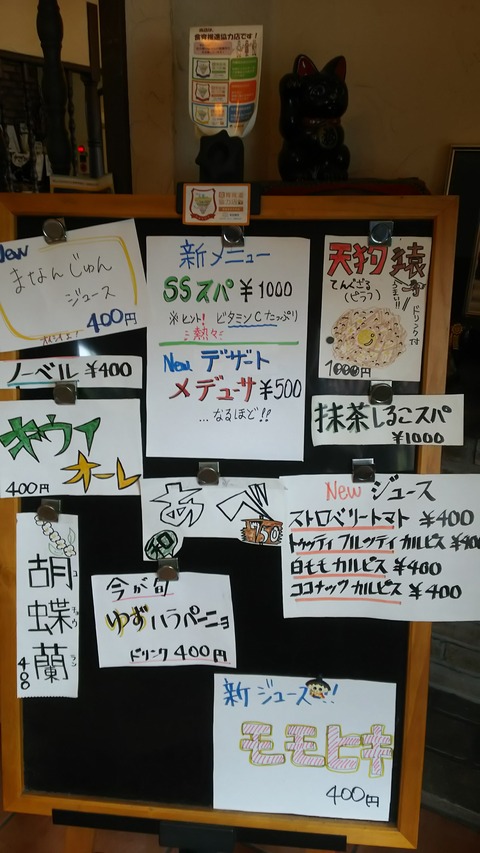 食育推進協力店です!
New
まなんじゅん
ジュース
400円
新メニュー
SSスパ ¥1000
※ヒント! ビタミンCたっぷり
熱々
New デザート
メデューサ ¥500
...なるほど!!
天狗猿
てんぐざる
(ピラフ)
ドリンクです
1000円
ノーベル ¥400
抹茶しるこスパ
¥1000
キウイ
オーレ
400円
あべ
750
和
New ジュース
ストロベリートマト ¥400
トゥッティフルッティカルピス ¥400
白モモカルピス ¥400
ココナッツカルピス ¥400
胡蝶蘭
コチョウラン
400
今が旬
ゆずハラペーニョ
ドリンク 400円
新ジュース!!
モモヒキ
400円